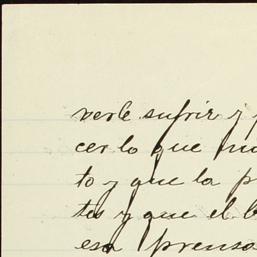 verle sufrir y
cer lo que
to y que la
tos y que el
esa prensa